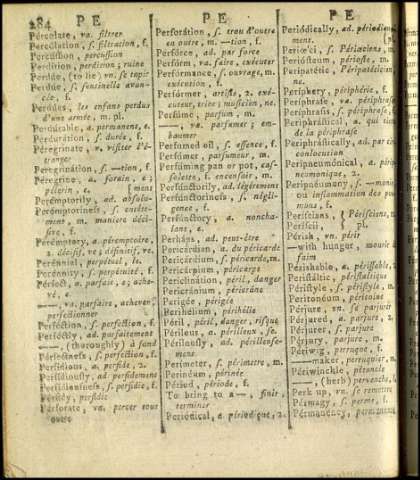 284 P E
P E
P E
Pércolate, va. filtrer
Percolátion, s. filtration, f.
Percússion, percussion
Perdítion, perdition; ruine
Perdúe, (to lie) vn. se tapir
Perdúe, s. sentinelle avan-
cée, f.
Perdúes, les enfans perdus
d'une armée, m. pl.
Pérdurable, a. permanent, e.
Perdurátion, s. durée, f.
Péregrinate, v. visiter l'é-
tranger
Peregrinátion, s. —tion, f.
Péregrine, a. forain, e;
pélerin, e.
Péremptorily, ad. absolu-
[ment
Péremptoriness, s. entête-
ment, m. maniere déci-
sive, f.
Péremptory, a. péremptoire,
2. décisif, ve; définitif, ve.
Perénnial, perpétuel, le.
Perénnity, s. perpétuité, f.
Pérfect, a. parfait, e; ache-
vé, e.
——, va. parfaire, achever,
perfectionner
Perféction, s. perfection, f.
Pérfectly, ad. parfaitement
——, (thoroughly) à fond
Pérfectness, s. perfection, f.
Perfídious, a. perfide, 2.
Perfídiously, ad. perfidement
Perfídiousness, s. perfidie, f.
Pérfidy, perfidie
Pérforate, va. percer tout
outre
Perforátion, s. trou d'outre
en outre, m. —tion, f.
Perfórce, ad. par force
Perfórm, va. faire, exécuter
Perfórmance, s. ouvrage, m.
exécution, f.
Perfórmer, artiste, 2. exé-
cuteur, trice; musicien, ne.
Pérfume, parfum, m.
——, va. parfumer; em-
baumer
Perfumed oil, s. essence, f.
Perfúmer, parfumeur, m.
Perfúming pan or pot, cas-
solette, f. encensoir, m.
Perfúnctorily, ad. légérement
Perfúnctoriness, s. négli-
gence, f.
Perfúnctory, a. noncha-
lant, e.
Perháps, ad. peut-être
Pericárdian, a. du péricarde
Pericárdium, s. péricarde, m.
Pericárpium, péricarpe
Periclitátion, péril, danger
Pericránium, péricrâne
Perigée, périgée
Perihélium, périhélie
Péril, péril, danger, risque
Périlous, a. périlleux, se.
Périlously, ad. périlleuse-
ment
Perímeter, s. périmetre, m.
Perinéum, périnée
Périod, période, f.
To bring to a—, finir,
terminer
Periódical, a. périodique, 2.
Periódically, ad. périodique-
ment.
Periœ'ci, s. Périœciens, m.
Periósteum, périoste, m.
Peripatétic, Péripatéticien,
ne.
Periphery, périphérie, f.
Períphrase, va. périphraser
Períphrasis, s. périphrase, f.
Periphrástical, a. qui tient
de la périphrase
Periphrástically, ad. par cir-
conlocution
Peripneumónical, a. périp-
neumonique, 2.
Peripnéumony, s. —monie,
ou inflammation des pou-
mons, f.
Períscians, } Périsciens, m.
Períscii, } pl.
Pérish, vn. périr
—with hunger, mourir de
faim
Périshable, a. périssable, 2.
Peristáltic, péristaltique
Péristyle, s. péristile, m.
Peritonéum, péritoine
Pérjure, vn. se parjurir
Pérjured, a. parjure, 2.
Pérjurer, s. parjure
Pérjury, parjure, m.
Périwig, perruque, f.
——maker, perruquier, m.
Périwinckle, pétoncle
——, (herb) pervenche, f.
Perk up, vn. se remettre
Pérmagy, s. perme, f.
Pérmanency, permanence